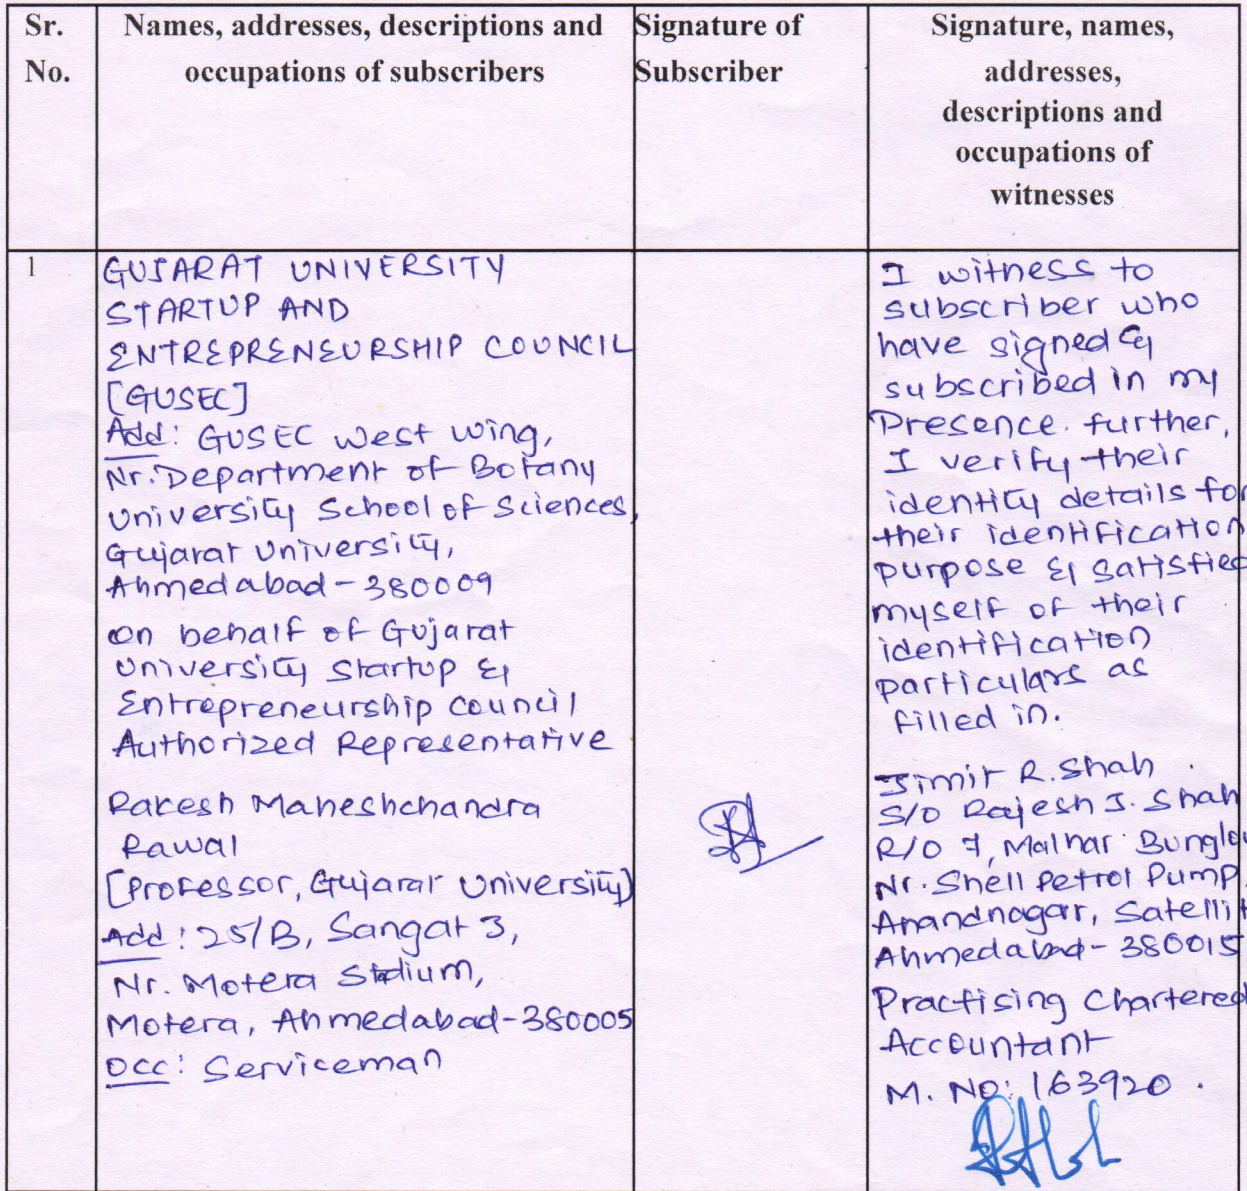 Sr.
No.
Names, addresses, descriptions and
occupations of subscribers
Signature of
Subscriber
Signature, names,
addresses,
descriptions and
occupations of
witnesses
1
GUJARAT UNIVERSITY
STARTUP AND
ENTREPRENEURSHIP COUNCIL
[GUSEC]
Add: GUSEC West Wing,
Nr. Department of Botany
University School of Sciences,
Gujarat University,
Ahmedabad-380009
on behalf of Gujarat
University Startup &
Entrepreneurship Council
Authorized Representative
Rakesh Maheshchandra
Rawal
[Professor, Gujarat University]
Add: 25/B, Sangat 3,
Nr. Motera Stadium,
Motera, Ahmedabad-380005
Occ: Serviceman
I witness to
subscriber who
have signed &
subscribed in my
Presence. further,
I verify their
identity details for
their identification
purpose & satisfied
myself of their
identification
particulars as
filled in.
Jimit R. Shah
S/O Rajesh J. Shah
R/O 7, Malhar Bunglow
Nr. Shell Petrol Pump,
Anandnagar, Satellit
Ahmedabad-380015
Practising Chartered
Accountant
M. NO: 163920.